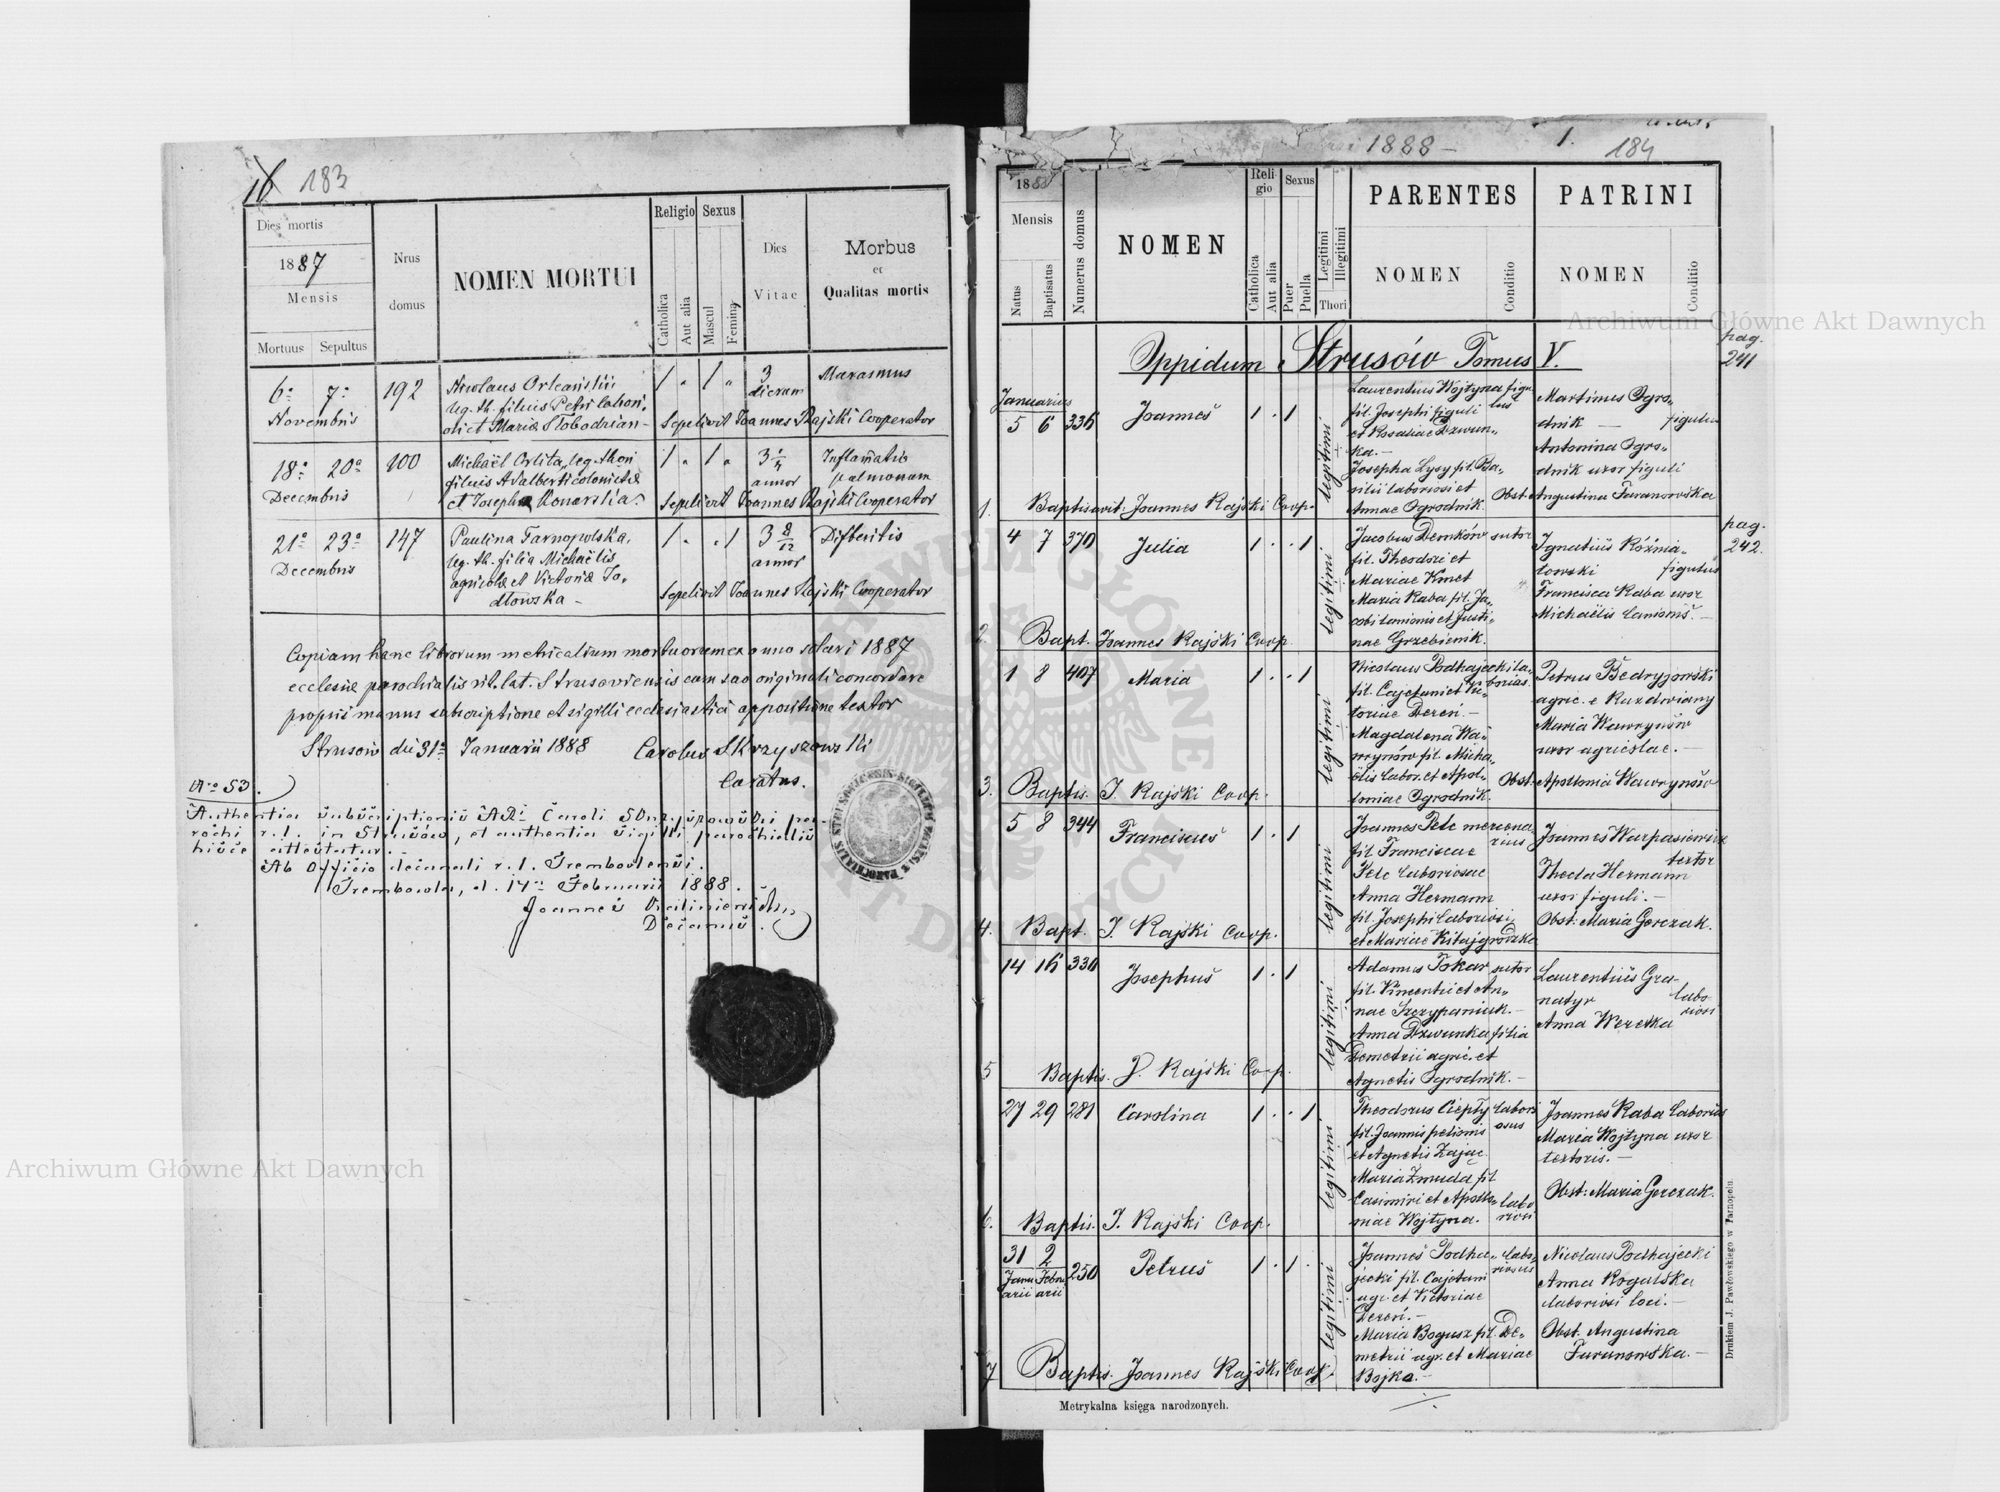 16 183
Dies mortis
1887
Mensis
Mortuus Sepultus
Nrus
domus
NOMEN MORTUI
Religio
Catholica
Aut alia
Sexus
Mascul
Femina
Dies
Vitae
Morbus
et
Qualitas mortis
6a 7a 192
Novembris
Nicolaus
leg. th. filius Petri
et Mariae
1 „ 1 „
3
dierum
Marasmus
Sepelivit Joannes Rajski Cooperator
18a 20a 100
Decembris
Michaël Orlita, leg. thori
filius Adalberti
et Josepha Konarska
1 „ 1 „
3
annor
Inflamatio
pulmonum
Sepelivit Joannes Rajski Cooperator
21a 23a 147
Decembris
Paulina Tarnopolska,
leg. th. filia Michaëlis
agricolae et Victoriae Jo-
dłowska -
1 „ „ 1
3 8/12
annor
Difteritis
Sepelivit Joannes Rajski Cooperator
Copiam hanc librorum metricalium mortuorum ex anno solari 1887
ecclesiae parochialis rit. lat. Strusoviensis cum suo originali concordare
propriis manus subscriptione et sigilli ecclesiastici appositione testor
Strusów die 31a Januarii 1888 Carolus Skrzyszowski
Curatus.
No 53.
Authentia subscriptionis ARi Caroli Skrzyszowski pa-
rochi r. l. in Strusów, et authentia sigilli parochialis
hisce attestatur. -
Ab Officio decanali r. l. Trembovlensi.
Trembowla, d. 14a Februarii 1888.
Joannes
Decanus.
1888 - 1. 184
1888
Mensis
Natus
Baptisatus
Numerus domus
NOMEN
Religio
Catholica
Aut alia
Sexus
Puer
Puella
Legitimi
Illegitimi
Thori
PARENTES
NOMEN
Conditio
PATRINI
NOMEN
Conditio
Oppidum Strusów Tomus V.
pag.
241
Januarius
5 6 336 Joannes 1 . 1
legitimi
Laurentius Wojtyna figu-
lus
fil. Josephi figuli
et Rosaliae Dzwun-
ka. -
Josepha Lysy fil. Ba-
silii laboriosi et
Annae Ogrodnik.
Martinus Ogro-
dnik — figulus
Antonina Ogro-
dnik uxor figuli
Obst. Angustina Furanowska
1. Baptisavit: Joannes Rajski Coop.
pag.
242.
4 7 370 Julia 1 . . 1
legitimi
Jacobus Demków sutor
fil. Theodori et
Mariae Kmet
Maria Raba fil. Ja-
cobi lanionis et Justi-
nae Grzebienik.
Ignatius Róźnia-
towski figulus
Francisca Raba uxor
Michaëlis lanionis. —
2. Bapt. Joannes Rajski Coop.
1 8 407 Maria 1 . . 1
legitimi
Nicolaus Podhajecki la-
borios.
fil. Cajetani et Vic-
toriae Dereń. -
Magdalena Wa-
wrynów fil. Micha-
ëlis labor. et Apol-
loniae Ogrodnik.
Petrus Bedryjowski
agric. e Ruzdwiany
Maria Wawrynów
uxor agricolae. —
Obst. Apollonia Wawrynów
3. Baptis. J. Rajski Coop.
5 8 344 Franciscus 1 . 1
legitimi
Joannes Pelc mercena-
rius
fil. Franciscae
Pelc laboriosae
Anna Hermann
fil. Josephi laboriosi
et Mariae Kitajgrodzka
Joannes Warpasiewicz
textor
Thecla Hermann
uxor figuli. —
Obst. Maria Gerczak.
4. Bapt. J. Rajski Coop.
14 16 330 Josephus 1 . 1
legitimi
Adamus Tokar sutor
fil. Vincentii et An-
nae Szczypaniuk. -
Anna Dzwunka filia
Demetrii agric. et
Agnetis Ogrodnik. -
Laurentius Gra-
natyr labo-
riosi
Anna Wereska
5 Baptis. J. Rajski Coop.
27 29 281 Carolina 1 . . 1
legitimi
Theodorus Ciepły labori-
osus
fil. Joannis pelionis
et Agnetis Zając
Maria Zmuda fil
Casimiri et Apollo-
niae Wojtyna. labo-
riosi
Joannes Raba laborios
Maria Wojtyna uxor
textoris. —
Obst: Maria Gerczak.
6. Baptis. J. Rajski Coop.
31 2 250 Petrus 1 . 1 .
Janu- Febru-
arii arii
legitimi
Joannes Podha- labo-
riosus
jecki fil. Cajetani
agr. et Victoriae
Dereń. -
Maria Bogusz fil. De-
metrii agr. et Mariae
Bojko. -
Nicolaus Podhajecki
Anna Rogulska
laboriosi loci. —
Obst. Angustina
Furanowska. —
7 Baptis. Joannes Rajski Coop.
Metrykalna księga narodzonych.
Drukiem J. Pawłowskiego w Tarnopolu.
Archiwum Główne Akt Dawnych
Archiwum Główne Akt Dawnych
ARCHIWUM GŁÓWNE AKT DAWNYCH